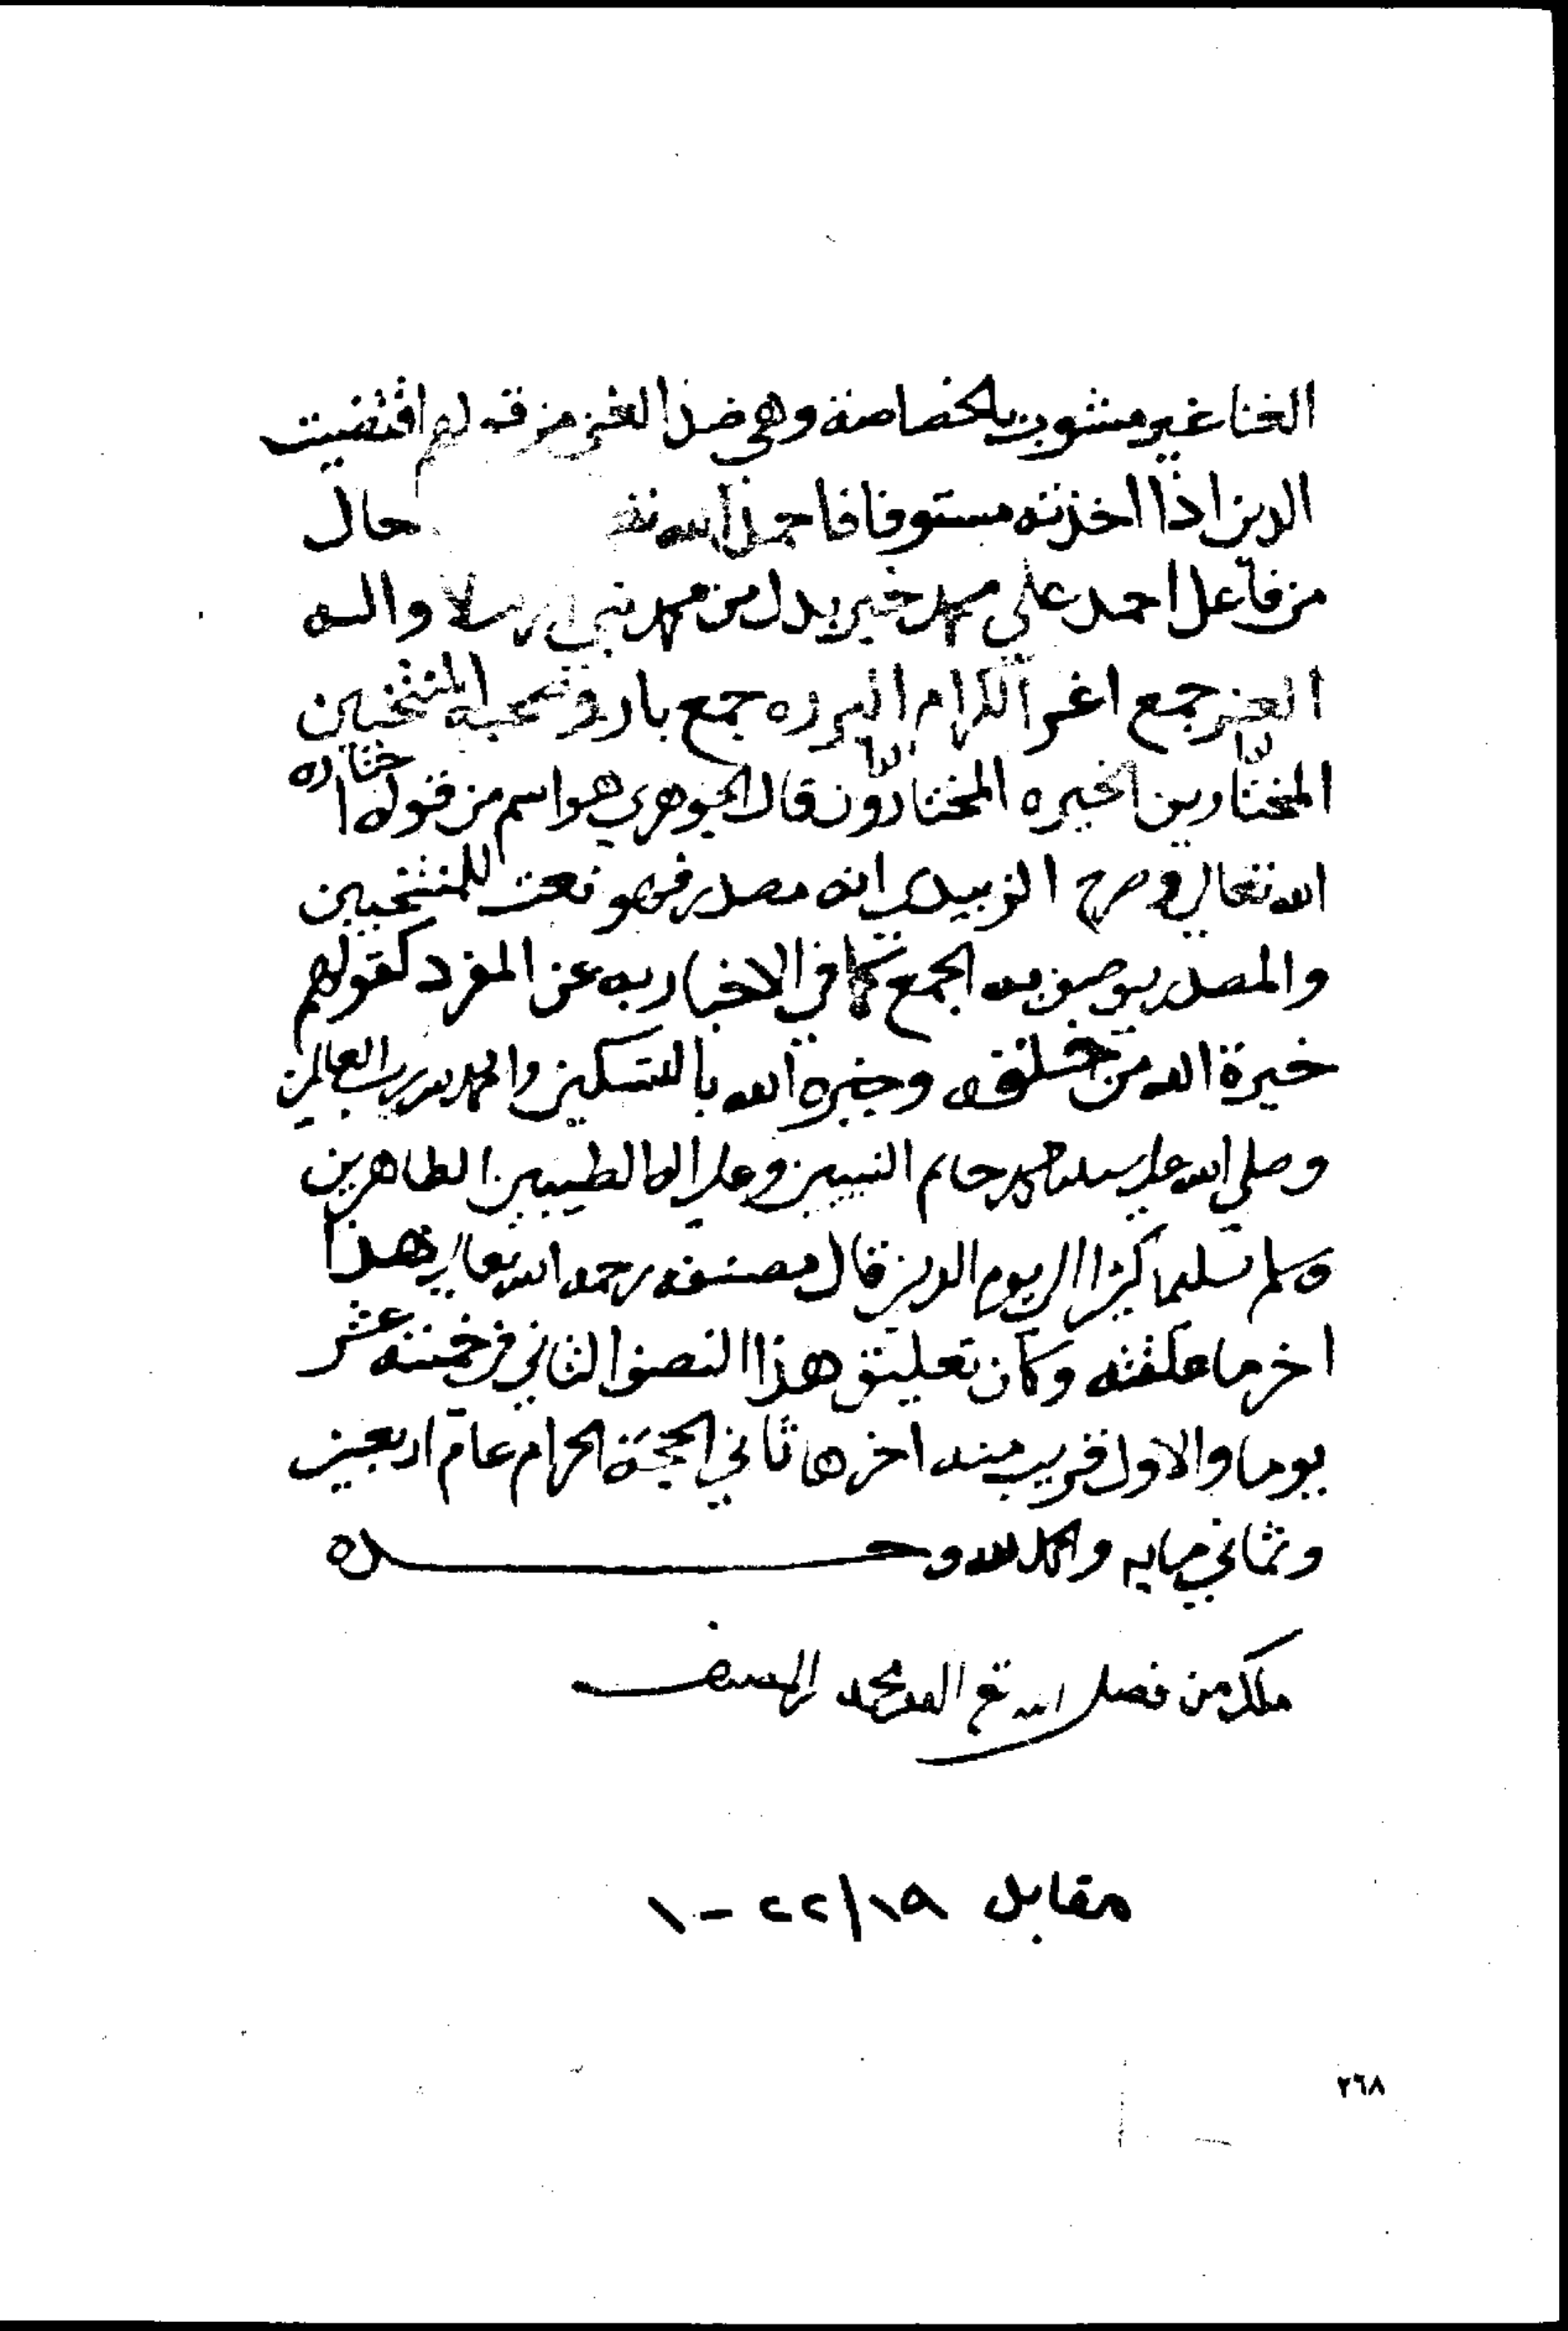 الغنا غير مشوب بالخصاصة وهي ضد الغنى من قولهم اقتضيت
الدين اذا اخذته مستوفا فاحمد الله حال
من فاعل احمد على محمد خير بدل من محمد نبي ارسلا واله
الغر جمع اغر الكرام البرره جمع بار وصحبه المنتخبين
المختارين الخيره المختارون قال الجوهري هو اسم من قولك اختاره
الله تعالى وصرح الزبيدي انه مصدر فهو نعت للمنتخبين
والمصدر يوصف به الجمع كما في الاخبار به عن المفرد كقولهم
خيرة الله من خلقه وخيره الله بالتسكين والحمد لله رب العالمين
وصلى الله على سيدنا محمد خاتم النبيين وعلى اله الطيبين الطاهرين
وسلم تسليما كثيرا الى يوم الدين قال مصنفه رحمه الله تعالى هذا
اخر ما علقته وكان تعليق هذا النصف الثاني في خمسة عشر
يوما والاول قريب منه اخرها ثاني الحجة الحرام عام اربعين
وثماني مايه والحمد لله وحـــــــده
ملكه من فضل الله تع العبد محمد
مقابل ١٩/٢٢-١
٢٦٨